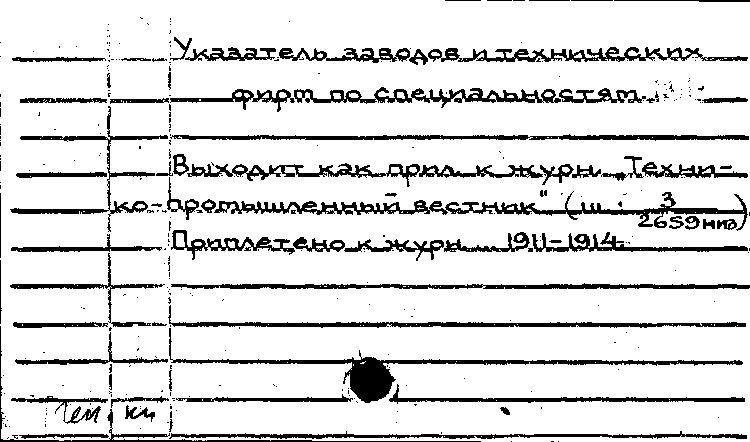 Указатель заводов и технических
фирм по специальностям.
Выходит как прил. к журн. „Техни-
ко-промышленный вестник" (ш. 3
2659 низ)
Приплетено к журн. 1911-1914.